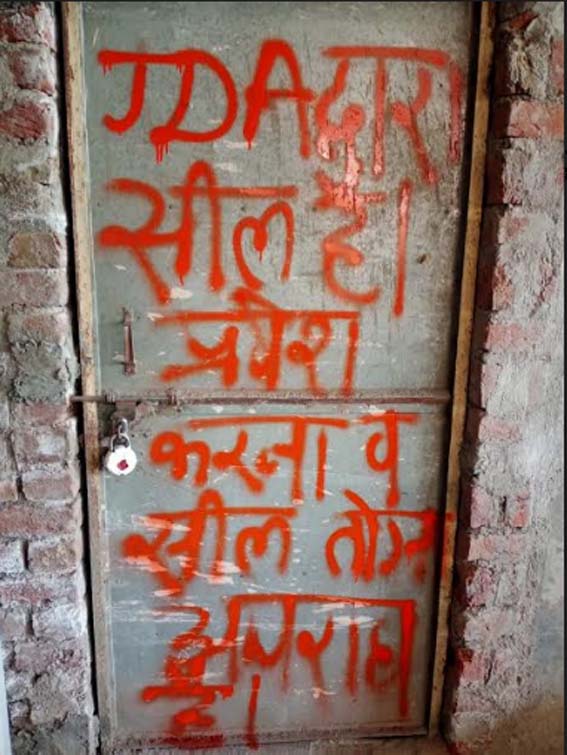 JDA द्वारा
सील है।
प्रवेश
करना व
सील तोड़ना
अपराध
है।